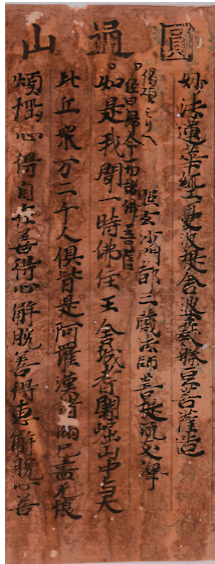 圓通山
妙法蓮華經憂波提舍婆藪槃豆菩薩造
照玄沙門都三藏法師菩提流支譯
如是我聞一時佛住王舍城耆闍崛山中与大
比丘衆万二千人俱皆是阿羅漢諸漏已盡无復
煩惱心得自在善得心解脫善得惠解脫心善